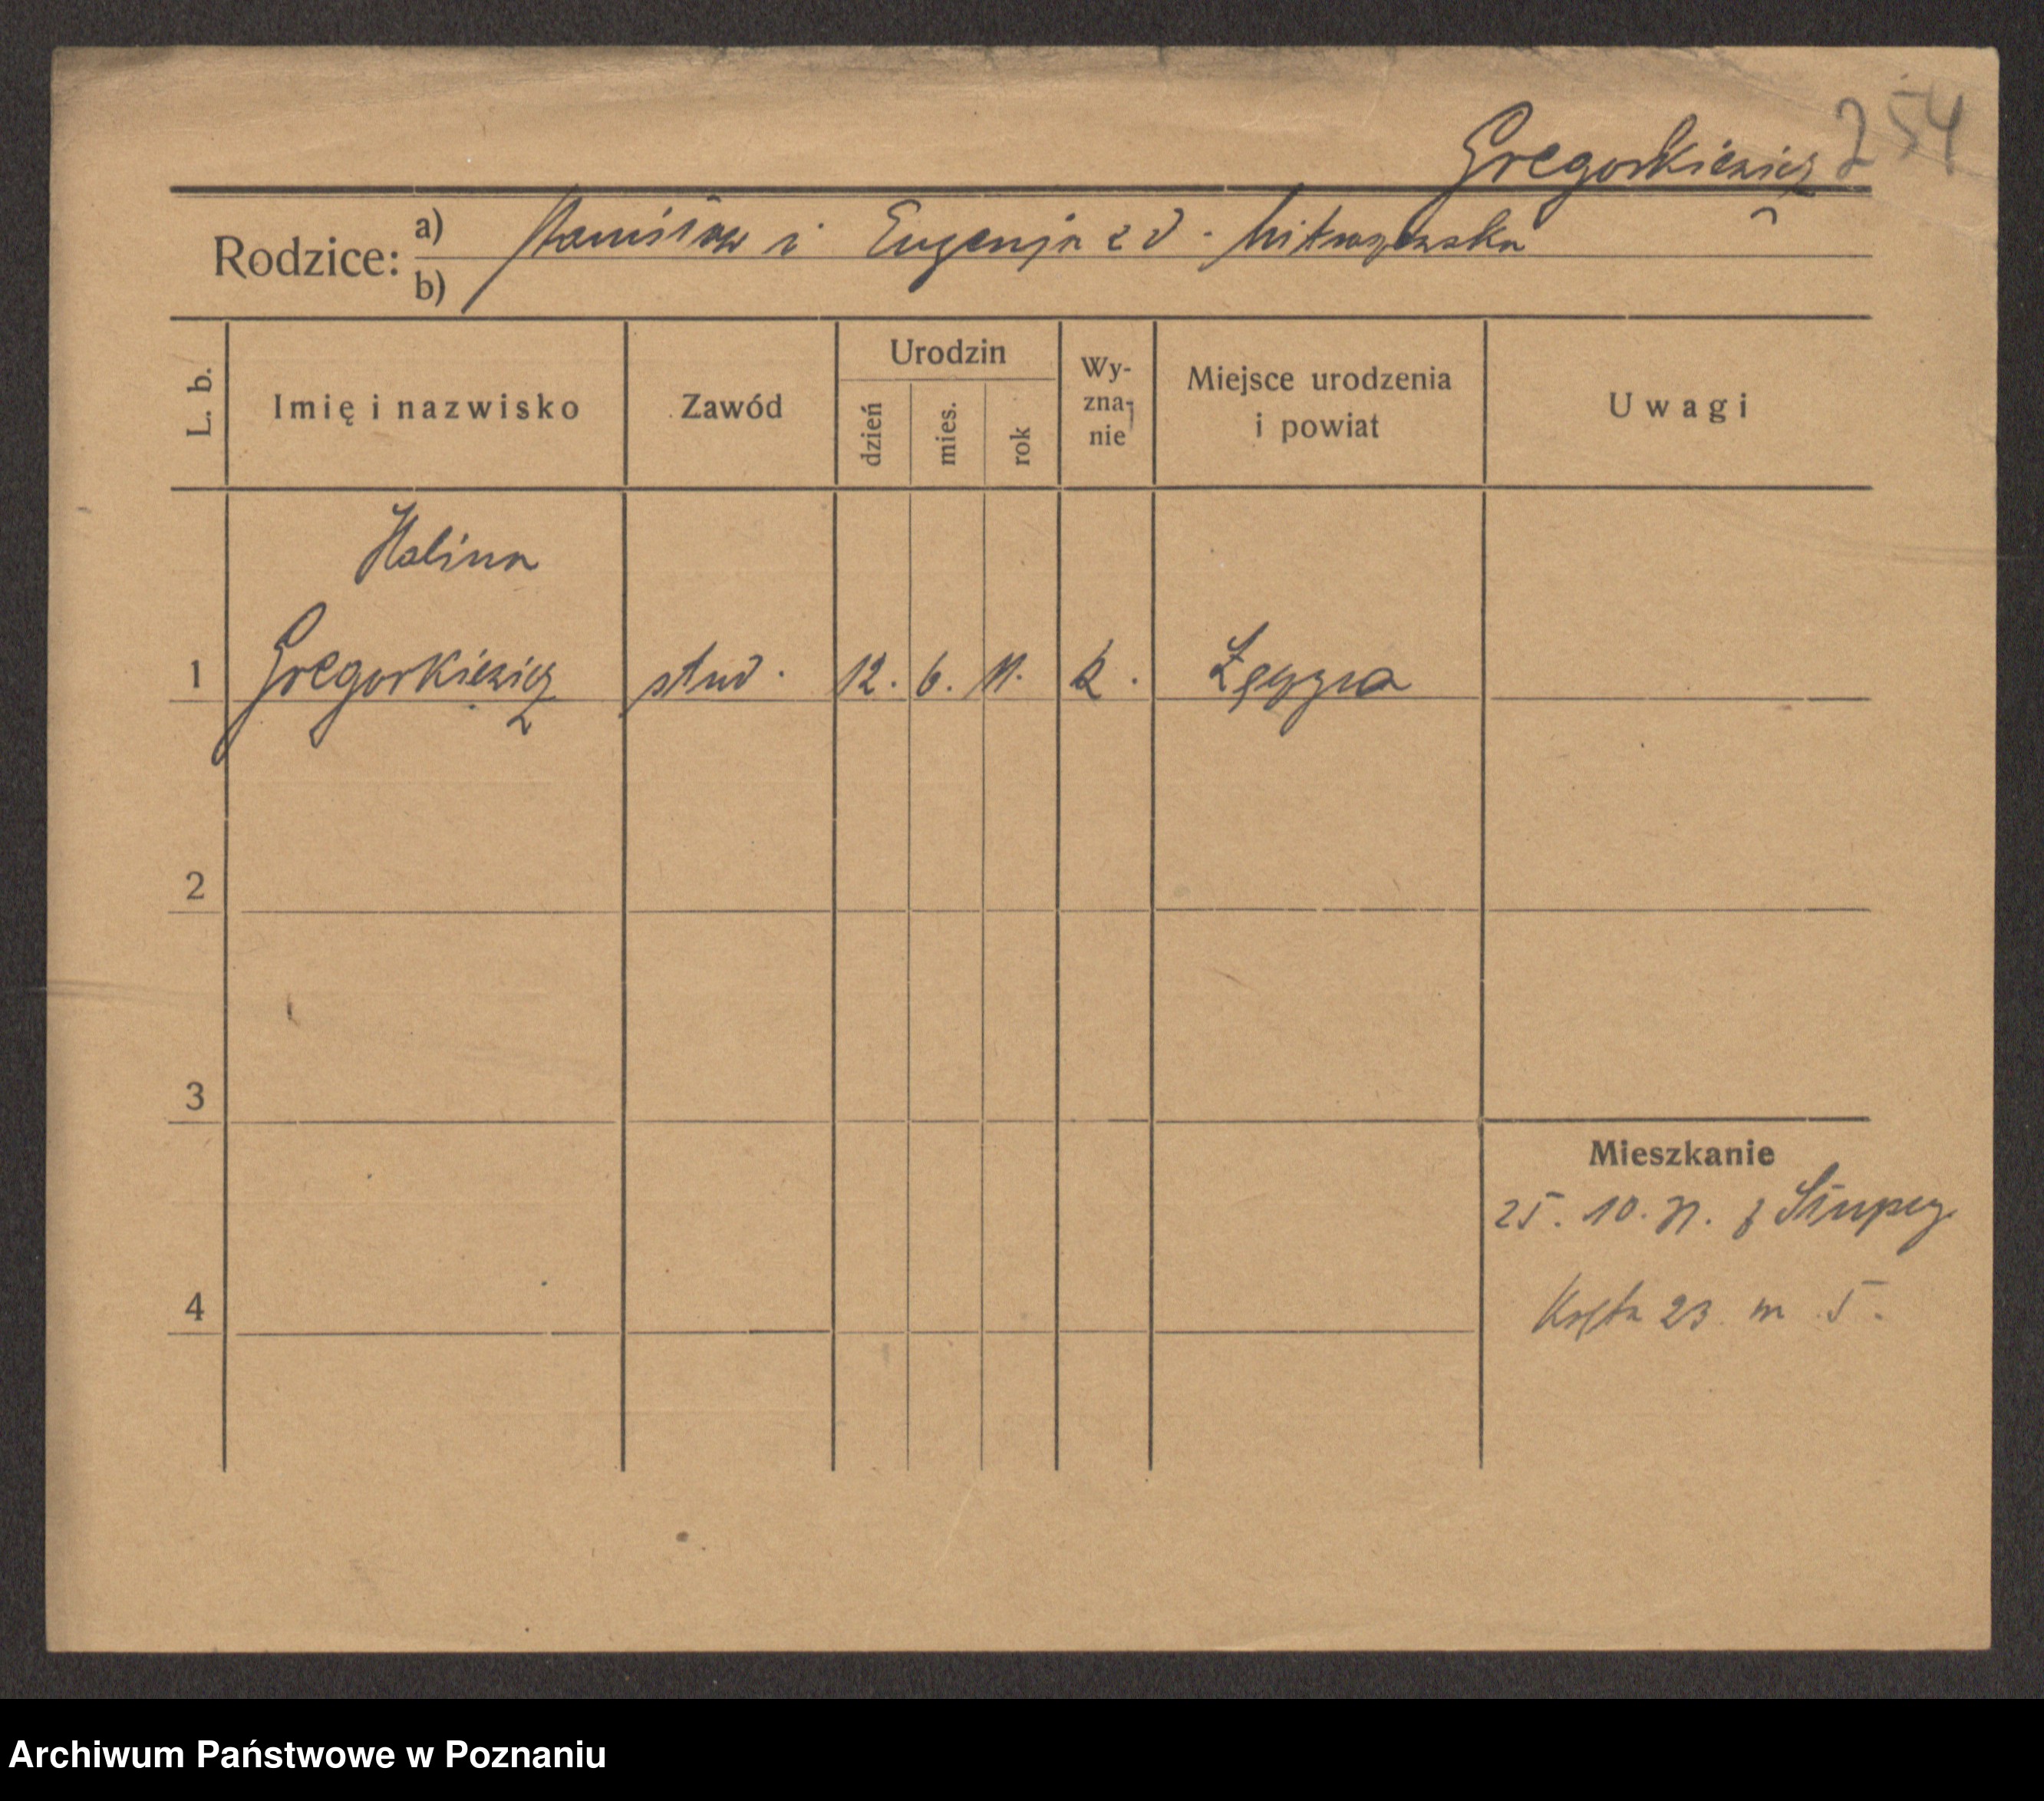 254
Gregorkiewicz
Rodzice: a) Stanisław i Eugenja z d.
b)
L. b. Imię i nazwisko Zawód Urodzin dzień mies. rok Wy-zna-nie Miejsce urodzenia i powiat Uwagi
Halina
1 Gregorkiewicz stud. 12. 6. 11. k.
2
3
Mieszkanie
25. 10. z Słupcy
4 23 m 5.
Archiwum Państwowe w Poznaniu